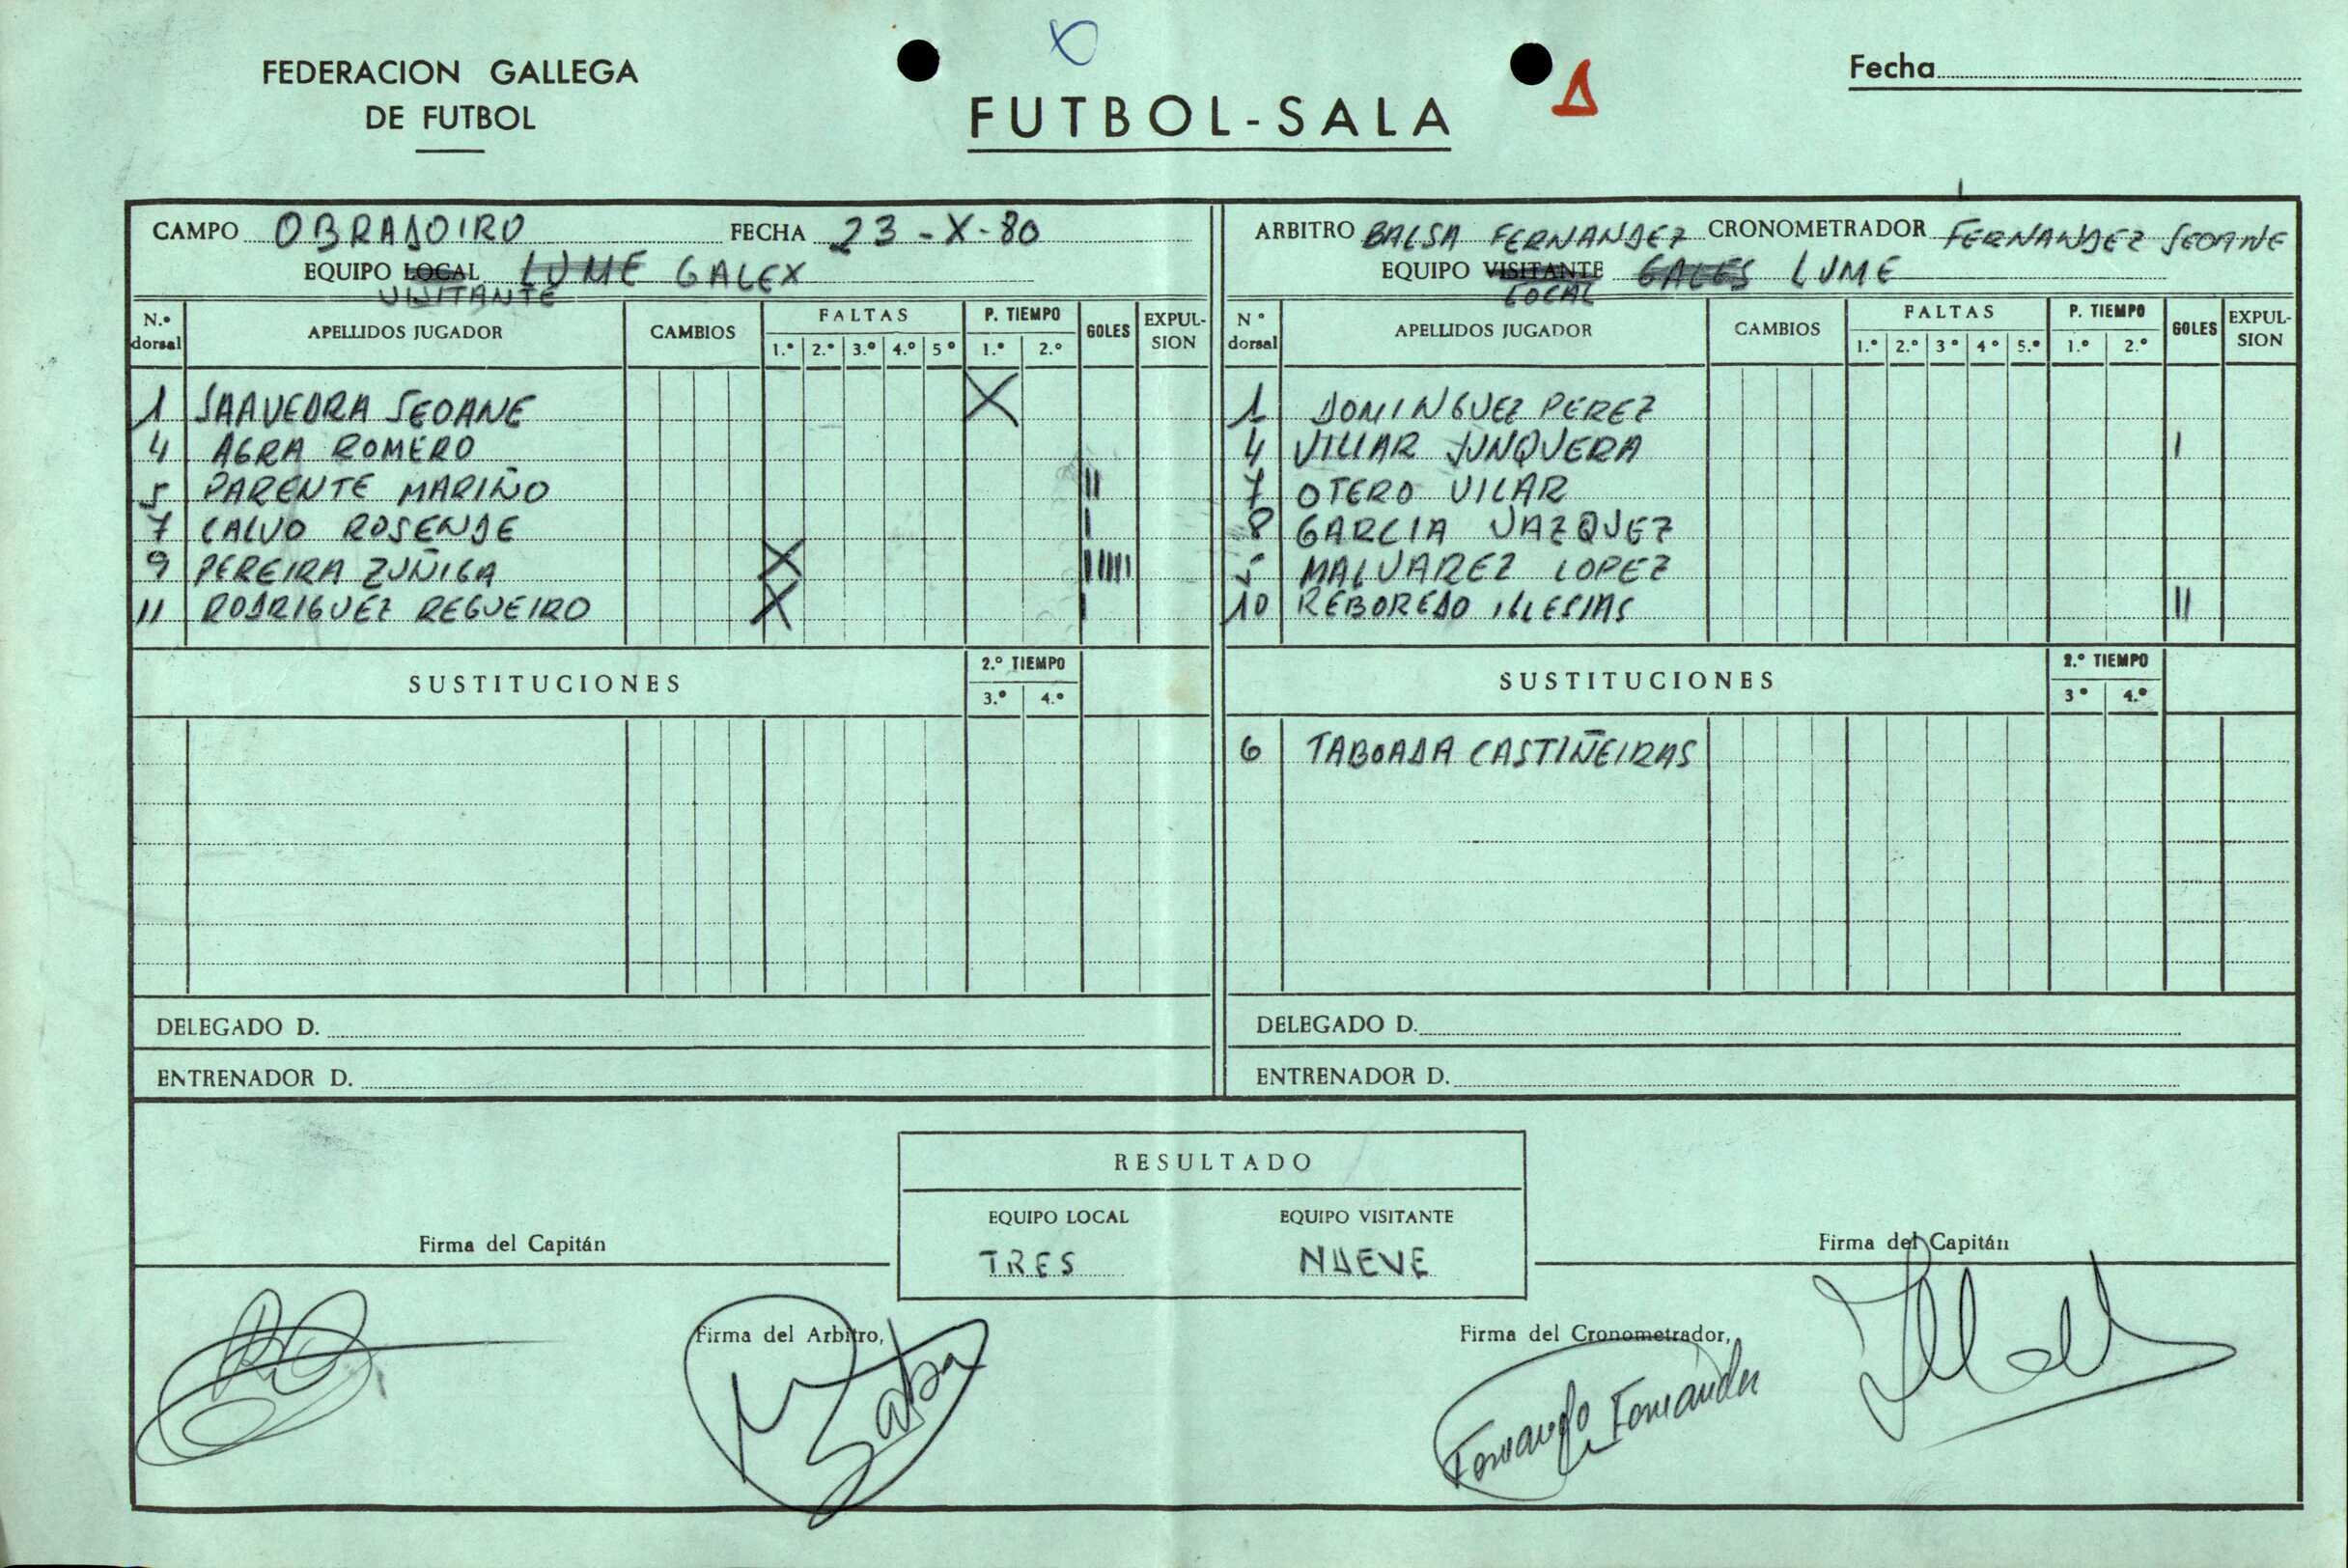 FEDERACION GALLEGA
DE FUTBOL
FUTBOL-SALA
Fecha
CAMPO OBRADOIRO FECHA 23-X-80
EQUIPO LOCAL LUME GALEX
VISITANTE
ARBITRO BALSA FERNANDEZ CRONOMETRADOR FERNANDEZ SEOANE
EQUIPO VISITANTE GALES LUME
LOCAL
N.º dorsal APELLIDOS JUGADOR CAMBIOS FALTAS 1.º 2.º 3.º 4.º 5º P. TIEMPO 1.º 2.º GOLES EXPULSION
1 SAAVEDRA SEOANE X
4 AGRA ROMERO
5 PARENTE MARIÑO II
7 CALVO ROSENDE I
9 PEREIRA ZUÑIGA X IIIII
11 RODRIGUEZ REGUEIRO X I
SUSTITUCIONES 2.º TIEMPO
3.º 4.º
DELEGADO D.
ENTRENADOR D.
N º dorsal APELLIDOS JUGADOR CAMBIOS FALTAS 1.º 2.º 3º 4º 5.º P. TIEMPO 1.º 2.º GOLES EXPULSION
1 DOMINGUEZ PEREZ
4 VILLAR JUNQUERA I
7 OTERO VILAR
8 GARCIA VAZQUEZ
5 MALVAREZ LOPEZ
10 REBOREDO IGLESIAS II
SUSTITUCIONES 2.º TIEMPO
3º 4.º
6 TABOADA CASTIÑEIRAS
DELEGADO D.
ENTRENADOR D.
RESULTADO
EQUIPO LOCAL EQUIPO VISITANTE
TRES NUEVE
Firma del Capitán
Firma del Capitán
Firma del Arbitro,
Firma del Cronometrador,
Fernando Fernandez